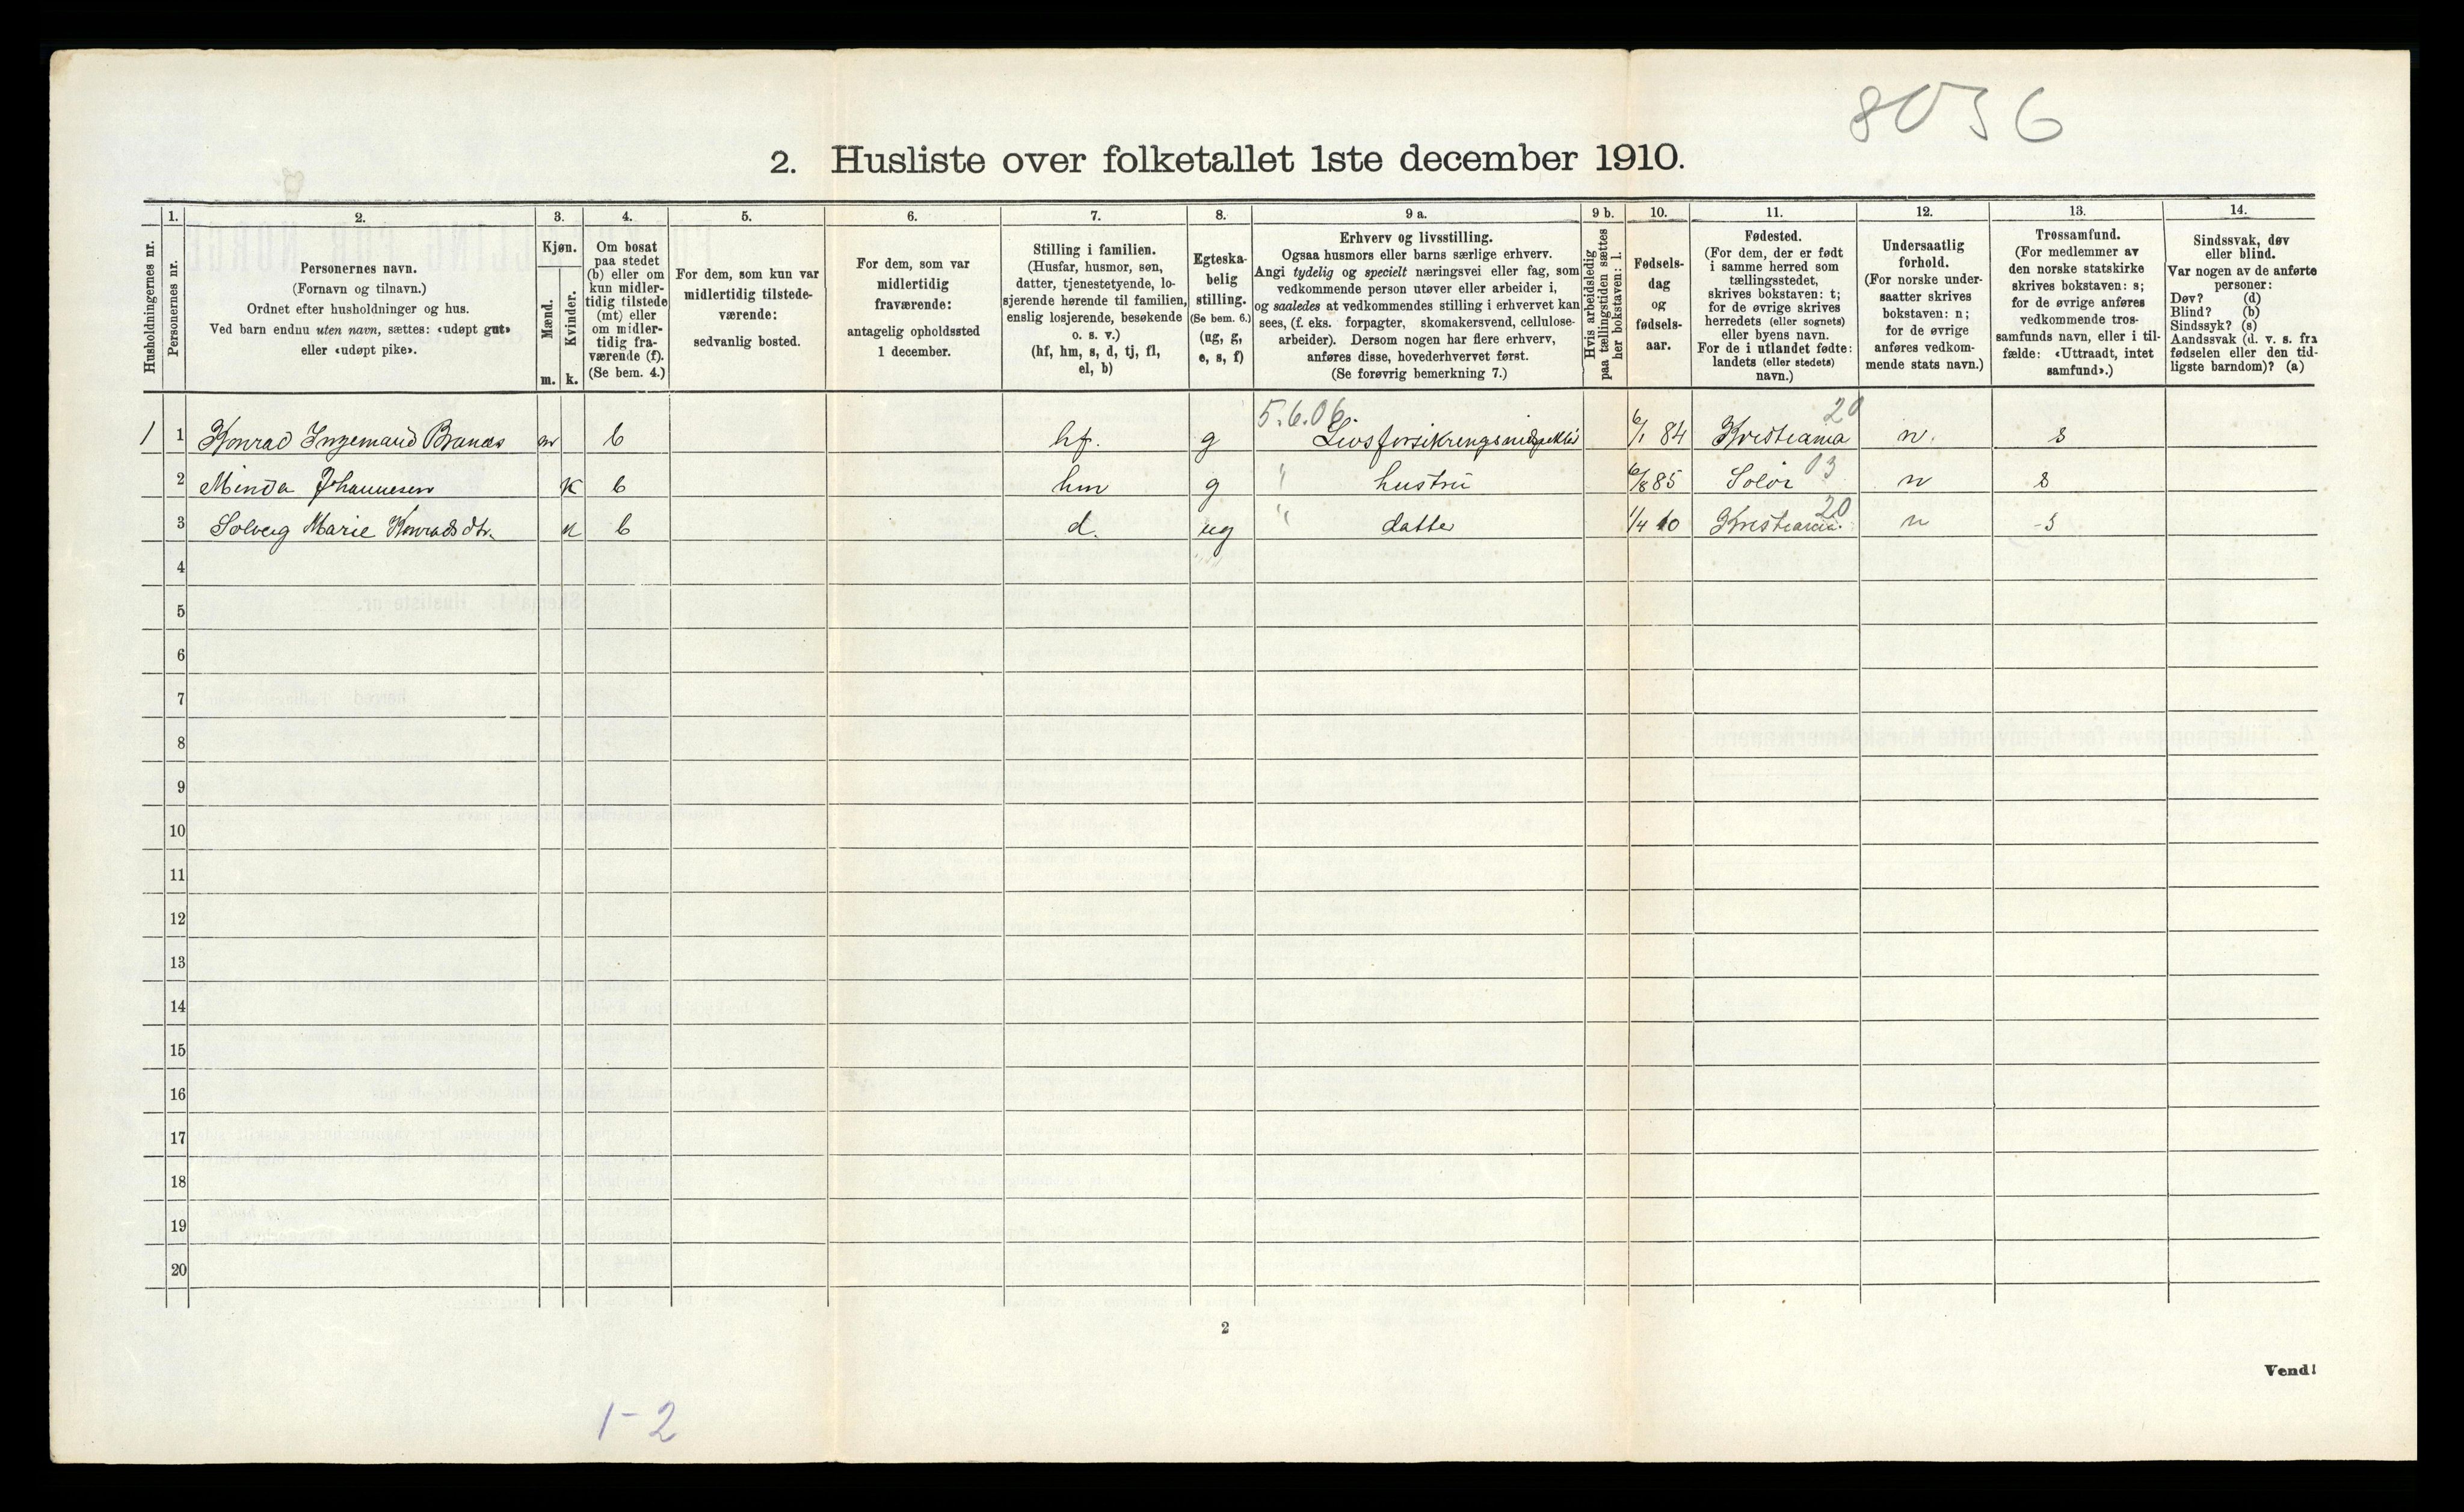 8036
2. Husliste over folketallet 1ste december 1910.
Husholdningernes nr.
1.
Personernes nr.
2.
Personernes navn.
(Fornavn og tilnavn.)
Ordnet efter husholdninger og hus.
Ved barn endnu uten navn, sættes: «udøpt gut»
eller «udøpt pike».
3.
Kjøn.
Mænd.
Kvinder.
m. k.
4.
Om bosat
paa stedet
(b) eller om
kun midler-
tidig tilstede
(mt) eller
om midler-
tidig fra-
værende (f).
(Se bem. 4.)
5.
For dem, som kun var
midlertidig tilstede-
værende:
sedvanlig bosted.
6.
For dem, som var
midlertidig
fraværende:
antagelig opholdssted
1 december.
7.
Stilling i familien.
(Husfar, husmor, søn,
datter, tjenestetyende, lo-
sjerende hørende til familien,
enslig losjerende, besøkende
o. s. v.)
(hf, hm, s, d, tj, fl,
el, b)
8.
Egteska-
belig
stilling.
(Se bem. 6.)
(ug, g,
e, s, f)
9 a.
Erhverv og livsstilling.
Ogsaa husmors eller barns særlige erhverv.
Angi tydelig og specielt næringsvei eller fag, som
vedkommende person utøver eller arbeider i,
og saaledes at vedkommendes stilling i erhvervet kan
sees, (f. eks. forpagter, skomakersvend, cellulose-
arbeider). Dersom nogen har flere erhverv,
anføres disse, hovederhvervet først.
(Se forøvrig bemerkning 7.)
9 b.
Hvis arbeidsledig
paa tællingstiden sættes
her bokstaven: l.
10.
Fødsels-
dag
og
fødsels-
aar.
11.
Fødested.
(For dem, der er født
i samme herred som
tællingsstedet,
skrives bokstaven: t;
for de øvrige skrives
herredets (eller sognets)
eller byens navn.
For de i utlandet fødte:
landets (eller stedets)
navn.)
12.
Undersaatlig
forhold.
(For norske under-
saatter skrives
bokstaven: n;
for de øvrige
anføres vedkom-
mende stats navn.)
13.
Trossamfund.
(For medlemmer av
den norske statskirke
skrives bokstaven: s;
for de øvrige anføres
vedkommende tros-
samfunds navn, eller i til-
fælde: «Uttraadt, intet
samfund».)
14.
Sindssvak, døv
eller blind.
Var nogen av de anførte
personer:
Døv? (d)
Blind? (b)
Sindssyk? (s)
Aandssvak (d. v. s. fra
fødselen eller den tid-
ligste barndom)? (a)
5.6.06 20
1 1 Konrad Ingemand Brandes m b hf. g Livsforsikrengsinspektør 6/1 84 Kristiania n. s
2 Minda Johannesen k b hm g " hustru 6/8 85 Solør 03 n s
3 Solveig Marie Konradsdtr. k b d. ug " datter 1/4 10 Kristiania 20 n s
4
5
6
7
8
9
10
11
12
13
14
15
16
17
18
19
20
2
Vend!
1-2